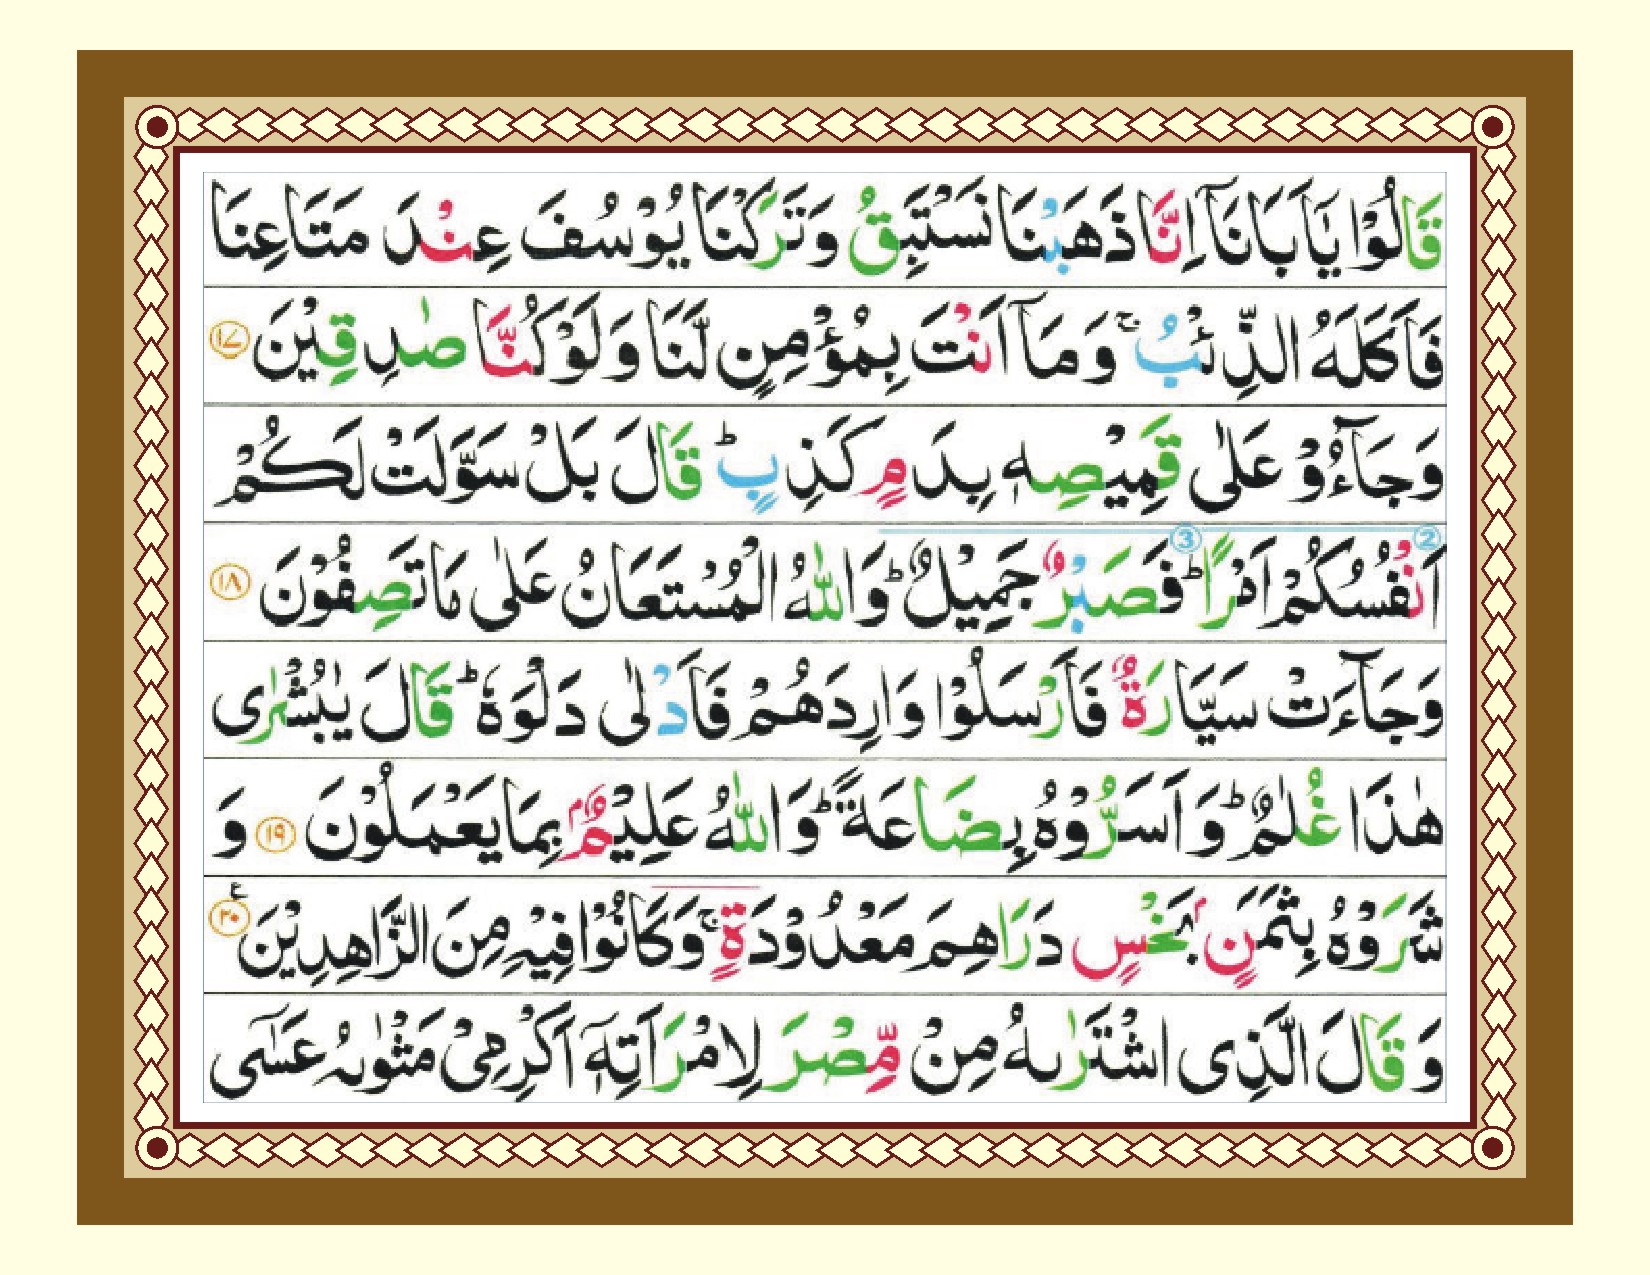 قَالُوْا يٰۤاَبَانَاۤ اِنَّا ذَهَبْنَا نَسْتَبِقُ وَتَرَكْنَا يُوْسُفَ عِنْدَ مَتَاعِنَا
فَاَكَلَهُ الذِّئْبُ ۚ وَمَاۤ اَنْتَ بِمُؤْمِنٍ لَّنَا وَلَوْ كُنَّا صٰدِقِيْنَ ١٧
وَجَآءُوْ عَلٰى قَمِيْصِهٖ بِدَمٍ كَذِبٍ ؕ قَالَ بَلْ سَوَّلَتْ لَكُمْ
2 3
اَنْفُسُكُمْ اَمْرًا ؕ فَصَبْرٌ جَمِيْلٌ ؕ وَاللّٰهُ الْمُسْتَعَانُ عَلٰى مَا تَصِفُوْنَ ١٨
وَجَآءَتْ سَيَّارَةٌ فَاَرْسَلُوْا وَارِدَهُمْ فَاَدْلٰى دَلْوَهٗ ؕ قَالَ يٰبُشْرٰى
هٰذَا غُلٰمٌ ؕ وَاَسَرُّوْهُ بِضَاعَةً ؕ وَاللّٰهُ عَلِيْمٌۢ بِمَا يَعْمَلُوْنَ ١٩ وَ
شَرَوْهُ بِثَمَنٍۢ بَخْسٍ دَرَاهِمَ مَعْدُوْدَةٍ ۚ وَكَانُوْا فِيْهِ مِنَ الزَّاهِدِيْنَ ٢٠ ع
وَقَالَ الَّذِى اشْتَرٰىهُ مِنْ مِّصْرَ لِامْرَاَتِهٖۤ اَكْرِمِىْ مَثْوٰىهُ عَسٰٓى